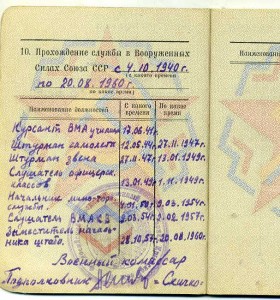 10. Прохождение службы в Вооруженных
Силах Союза ССР с 4.10.1940г.
(с какого времени)
по 20.08.1960г.
(по какое время)
Наименование должностей
С какого времени
По какое время
Курсант ВМА училища 17.06.41г.
Штурман самолета 12.05.44 27.11.1947г.
Штурман звена 27.11.47г. 13.01.1949г.
Слушатель офицерск.
классов 13.01.49г. 1.11.1949г.
Начальник
4.01.50г. 9.03.1954г.
Слушатель 9.03.54г. 9.02.1957г.
Заместитель началь-
ника штаба. 28.10.57г. 20.08.1960г.
Военный комиссар
Подполковник